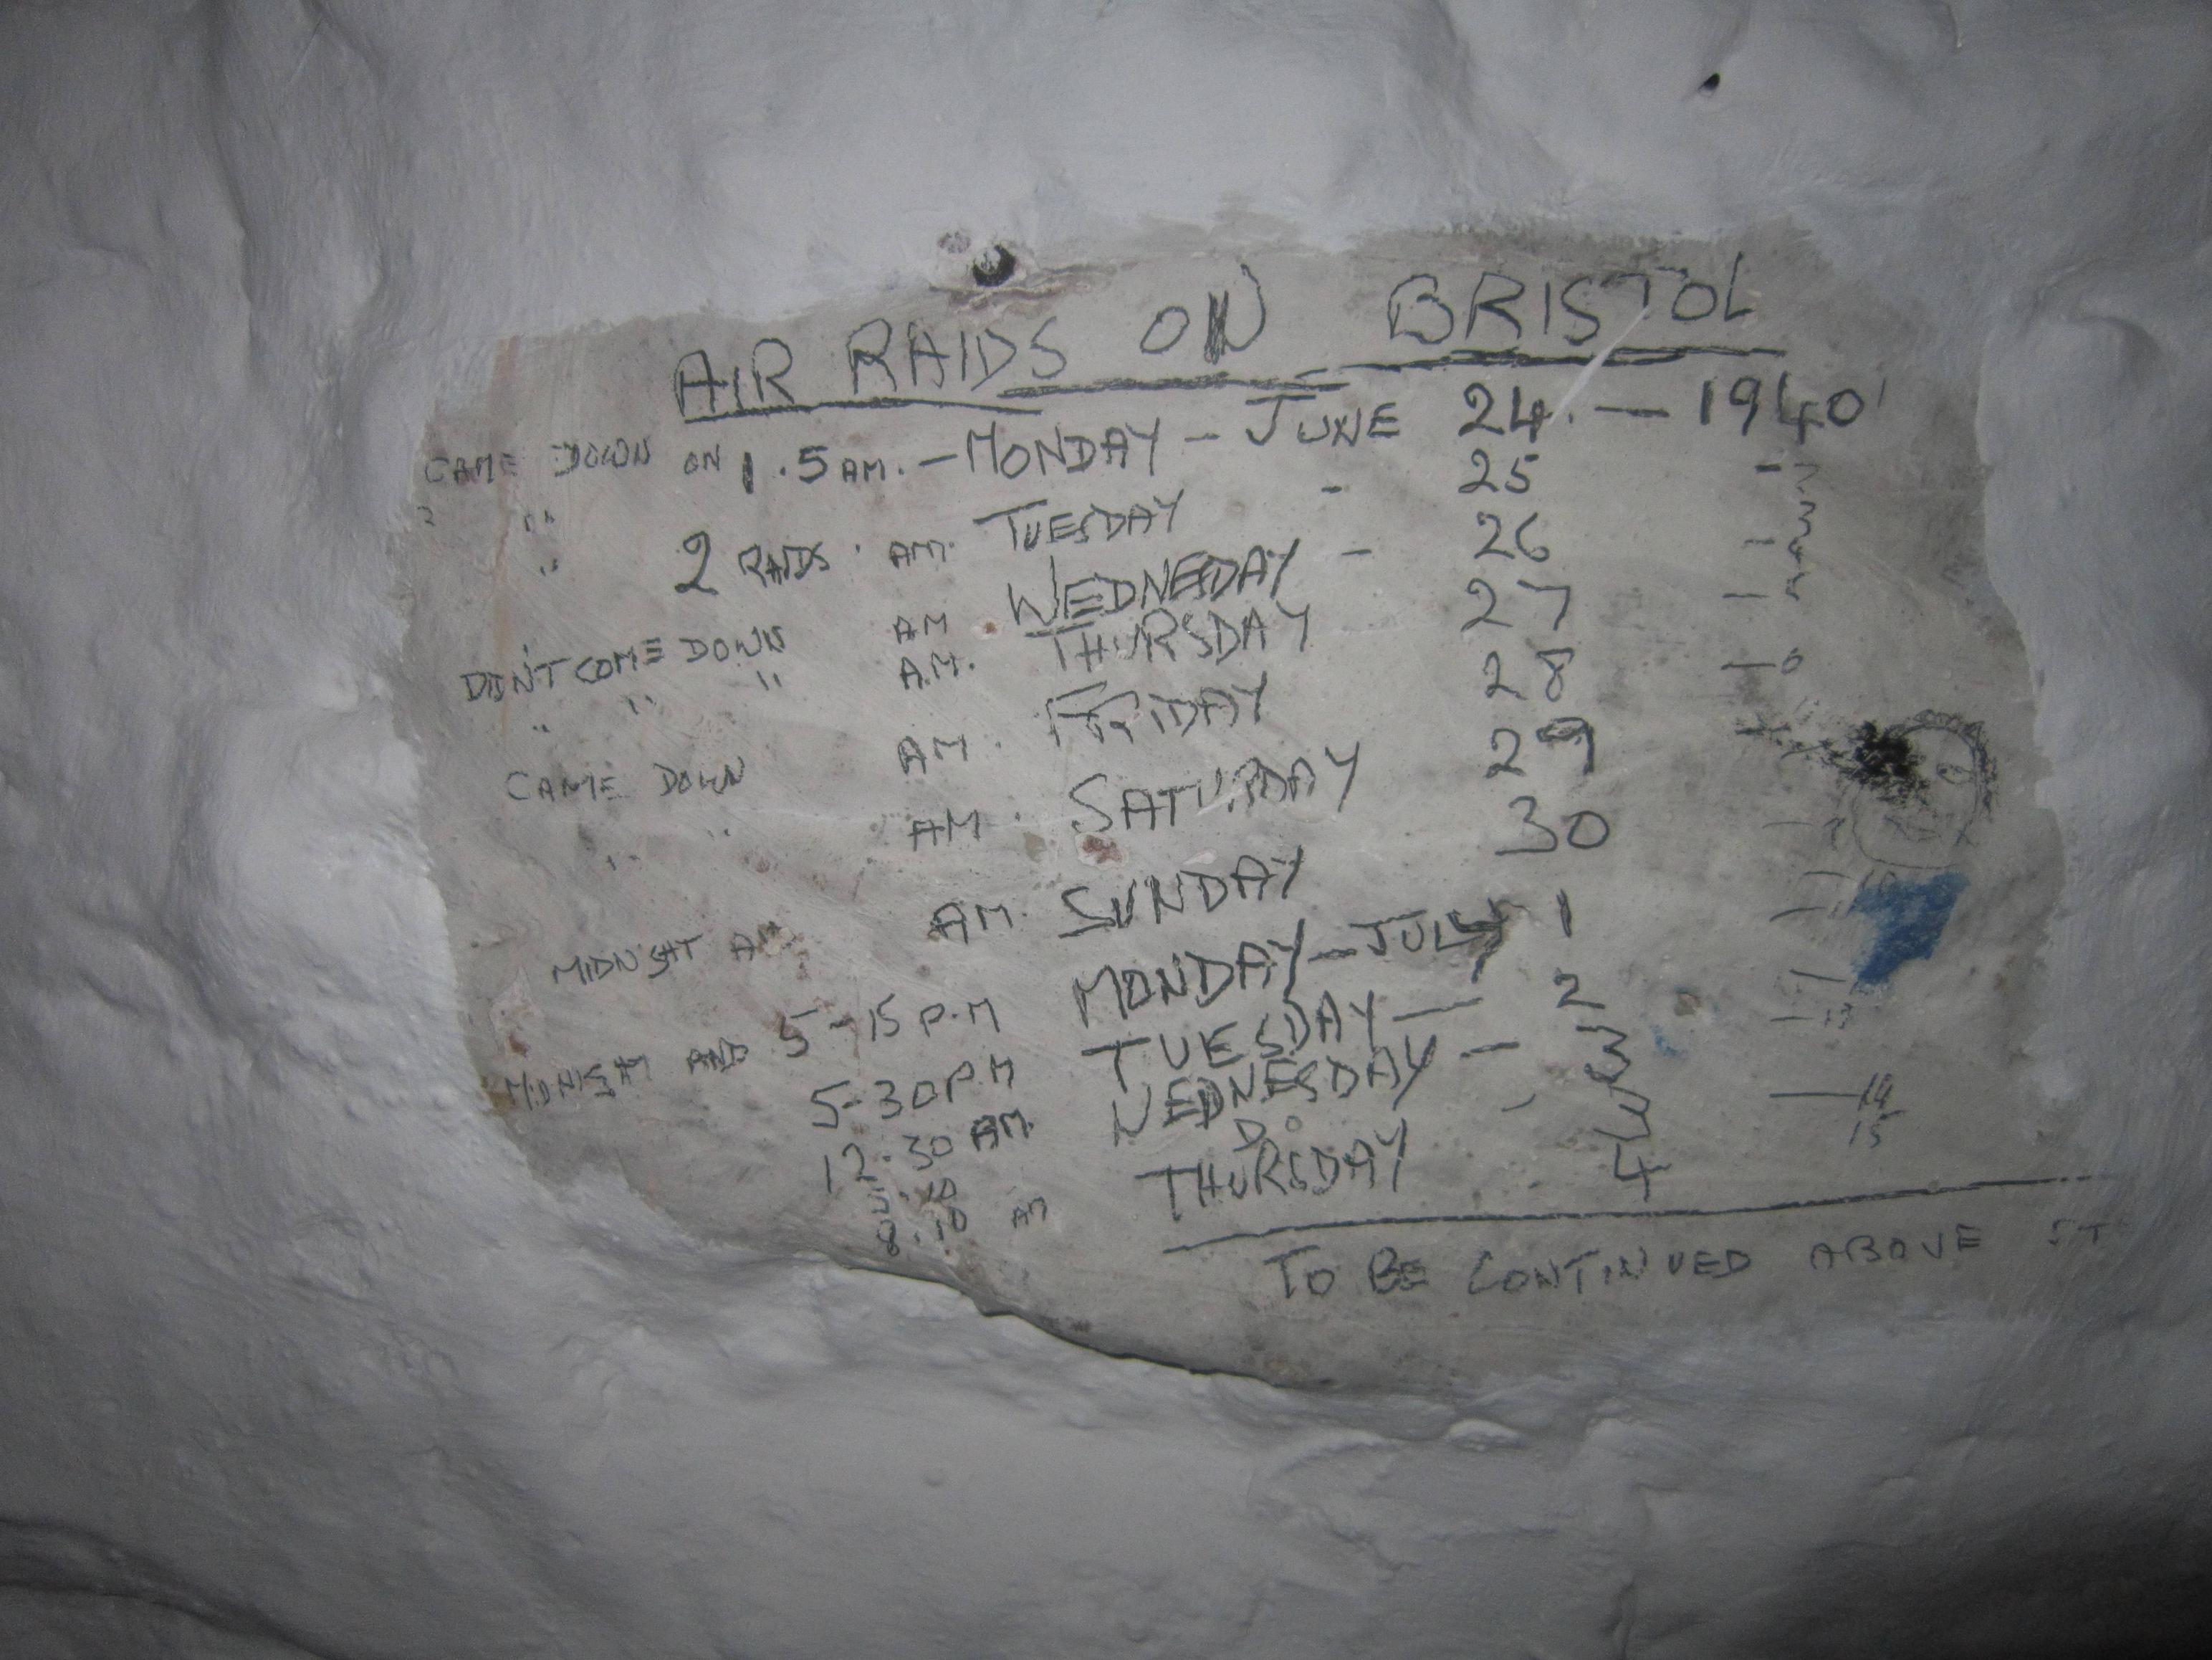 AIR RAIDS ON BRISTOL
CAME DOWN ON 1.5 AM. — MONDAY — JUNE 24. — 1940
" TUESDAY - 25 -
" 2 RAIDS. AM. WEDNESDAY - 26 - 3
DIDN'T COME DOWN AM THURSDAY - 27 -
" " " A.M. FRIDAY 28 — 6
CAME DOWN AM. SATURDAY 29
" " AM. SUNDAY 30
MIDNIGHT AM. AM. MONDAY — JULY 1
MIDNIGHT AND 5-15 P.M TUESDAY — 2
5-30 P.M WEDNESDAY — 3
12.30 AM. DO - 3
5.10
8.10 AM THURSDAY 4
— 14
15
TO BE CONTINUED ABOVE